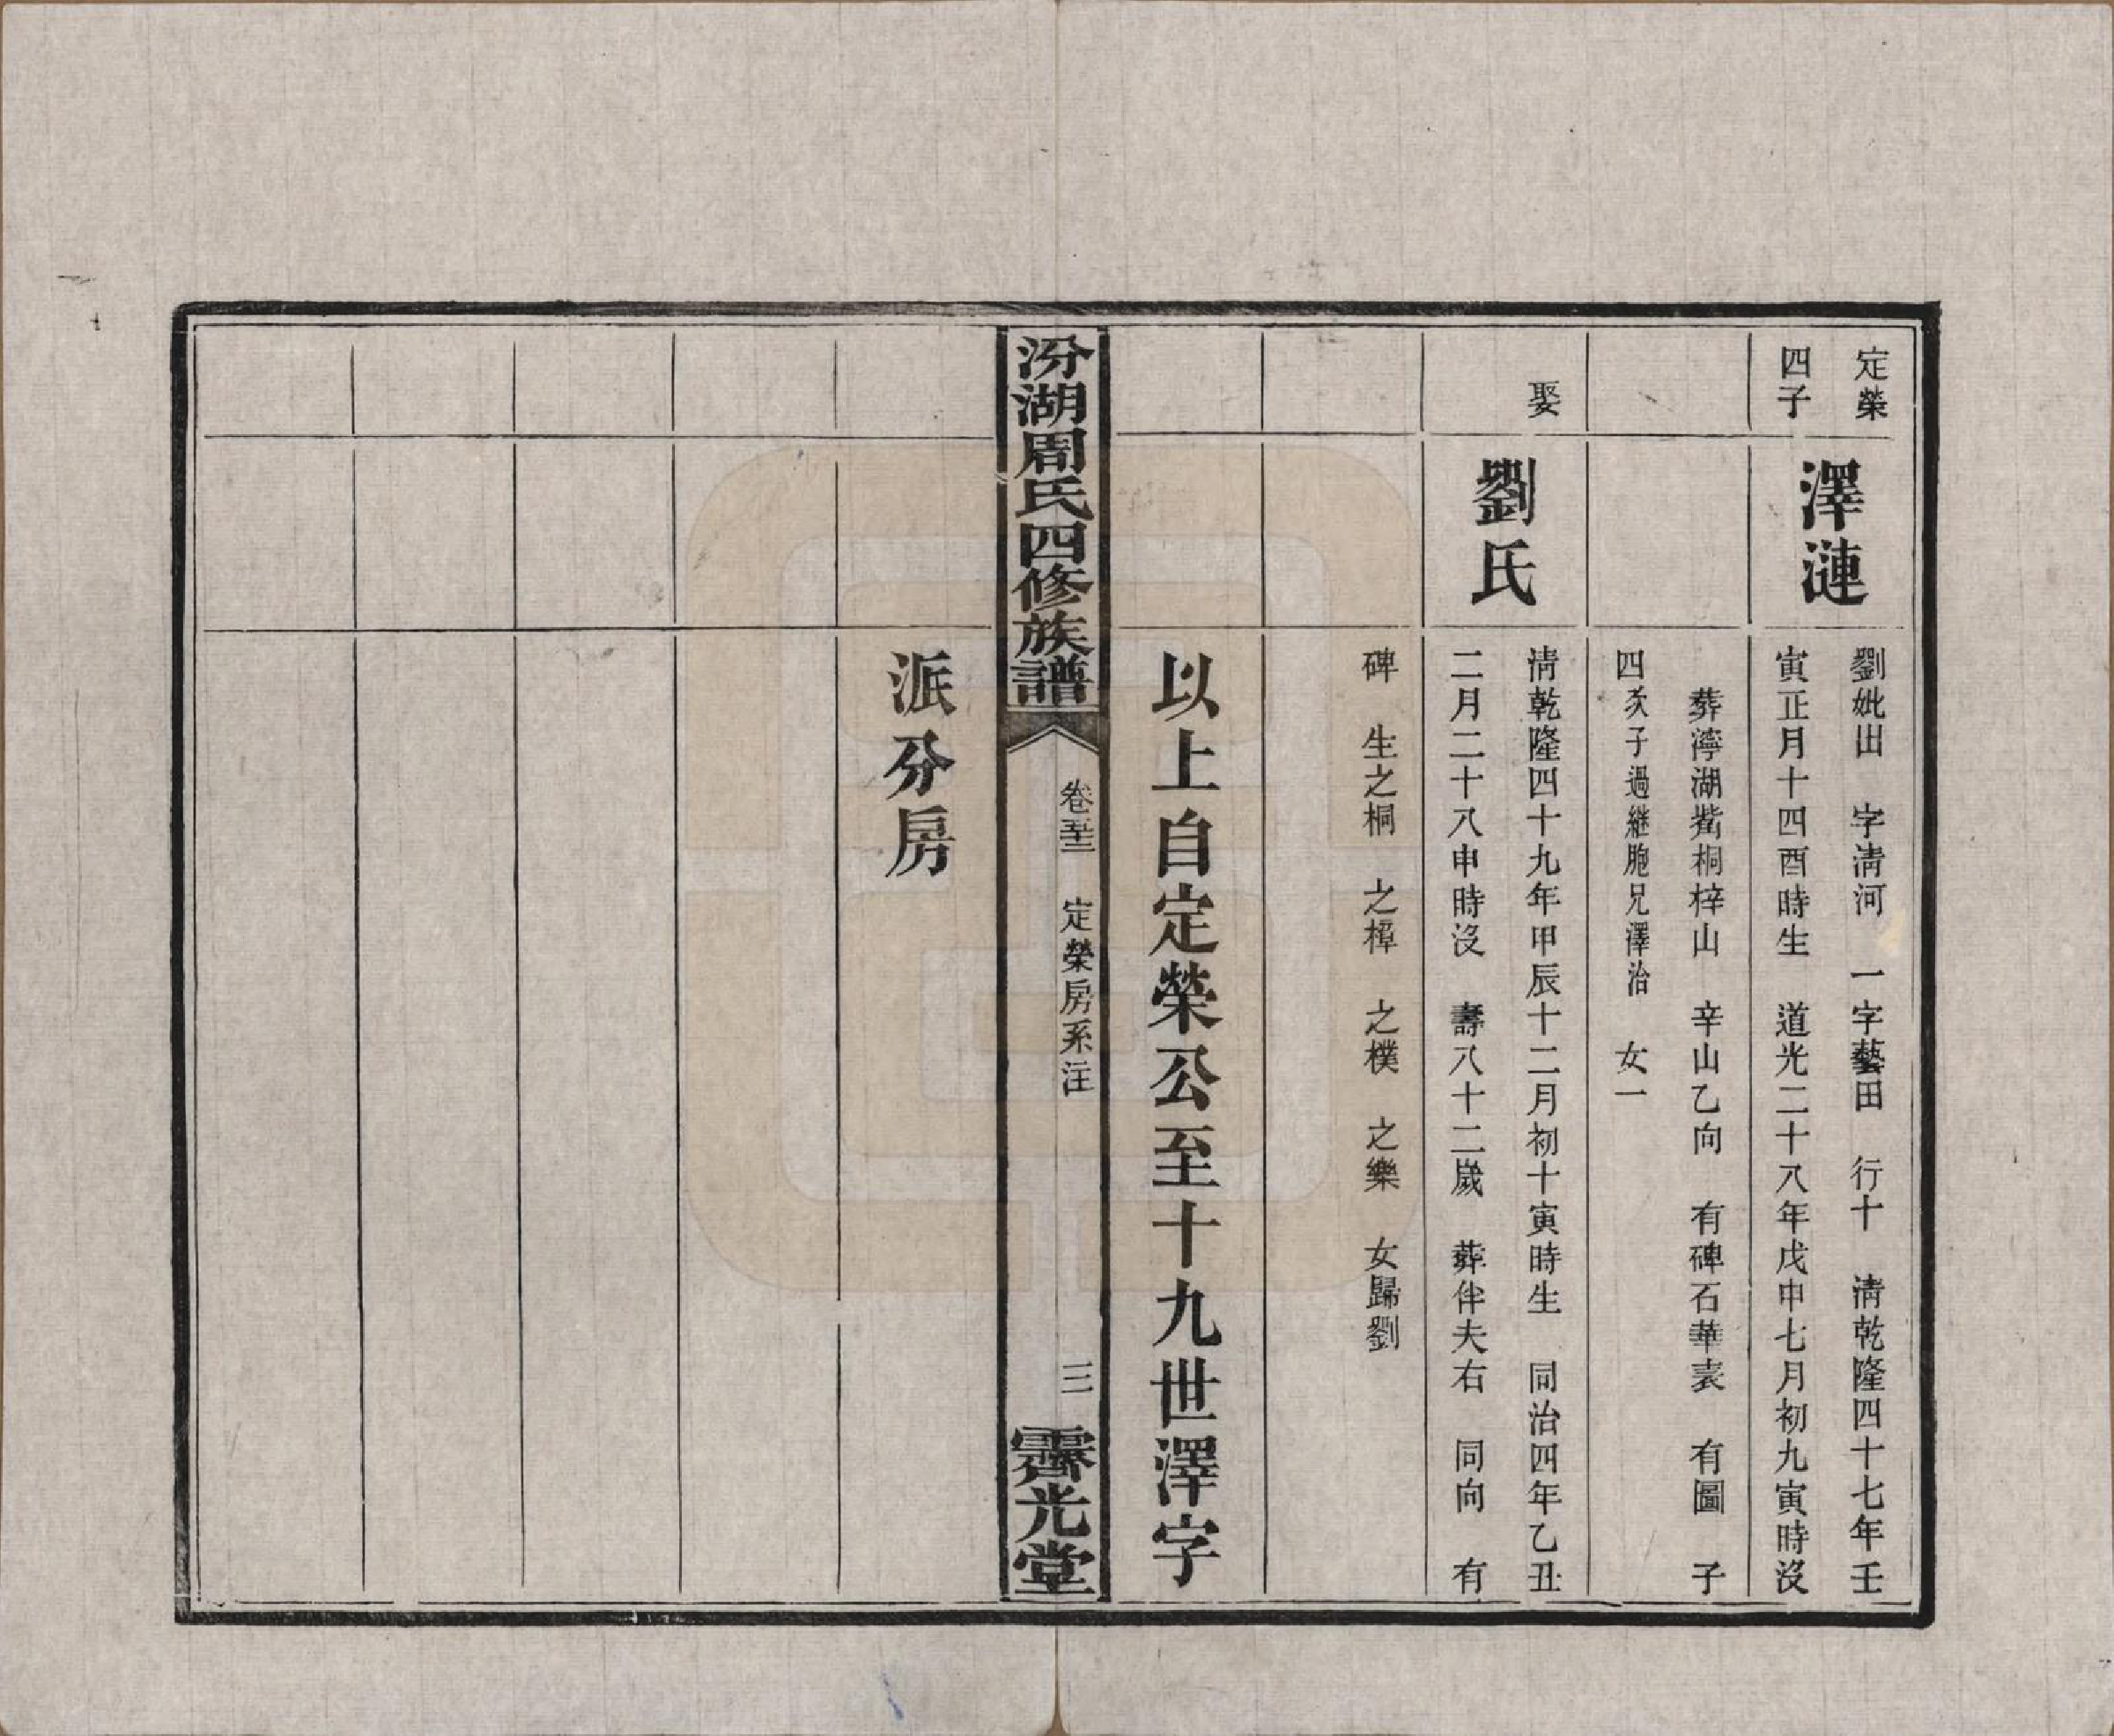 定榮
四子
澤漣
劉妣出　字清河　一字藝田　行十　清乾隆四十七年壬
寅正月十四酉時生　道光二十八年戊申七月初九寅時沒
葬濘湖觜桐梓山　辛山乙向　有碑石華表　有圖　子
四次子過継胞兄澤治　女一
娶
劉氏
清乾隆四十九年甲辰十二月初十寅時生　同治四年乙丑
二月二十八申時沒　壽八十二歲　葬伴夫右　同向　有
碑　生之桐　之樟　之樸　之樂　女歸劉
以上自定榮公至十九世澤字
汾湖周氏四修族譜
卷 定榮房系注
三
霽光堂
派分房